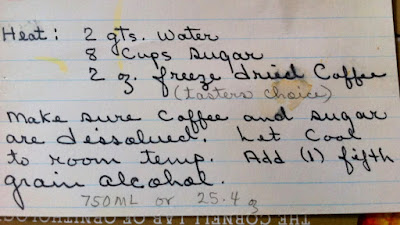 Heat: 2 qts. water
8 Cups sugar
2 oz. freeze dried Coffee
(tasters choice)
Make sure Coffee and sugar
are dissolved. Let Cool
to room temp. Add (1) fifth
grain alcohol.
750ML or 25.4 oz
THE CORNELL LAB OF ORNITHOLOGY